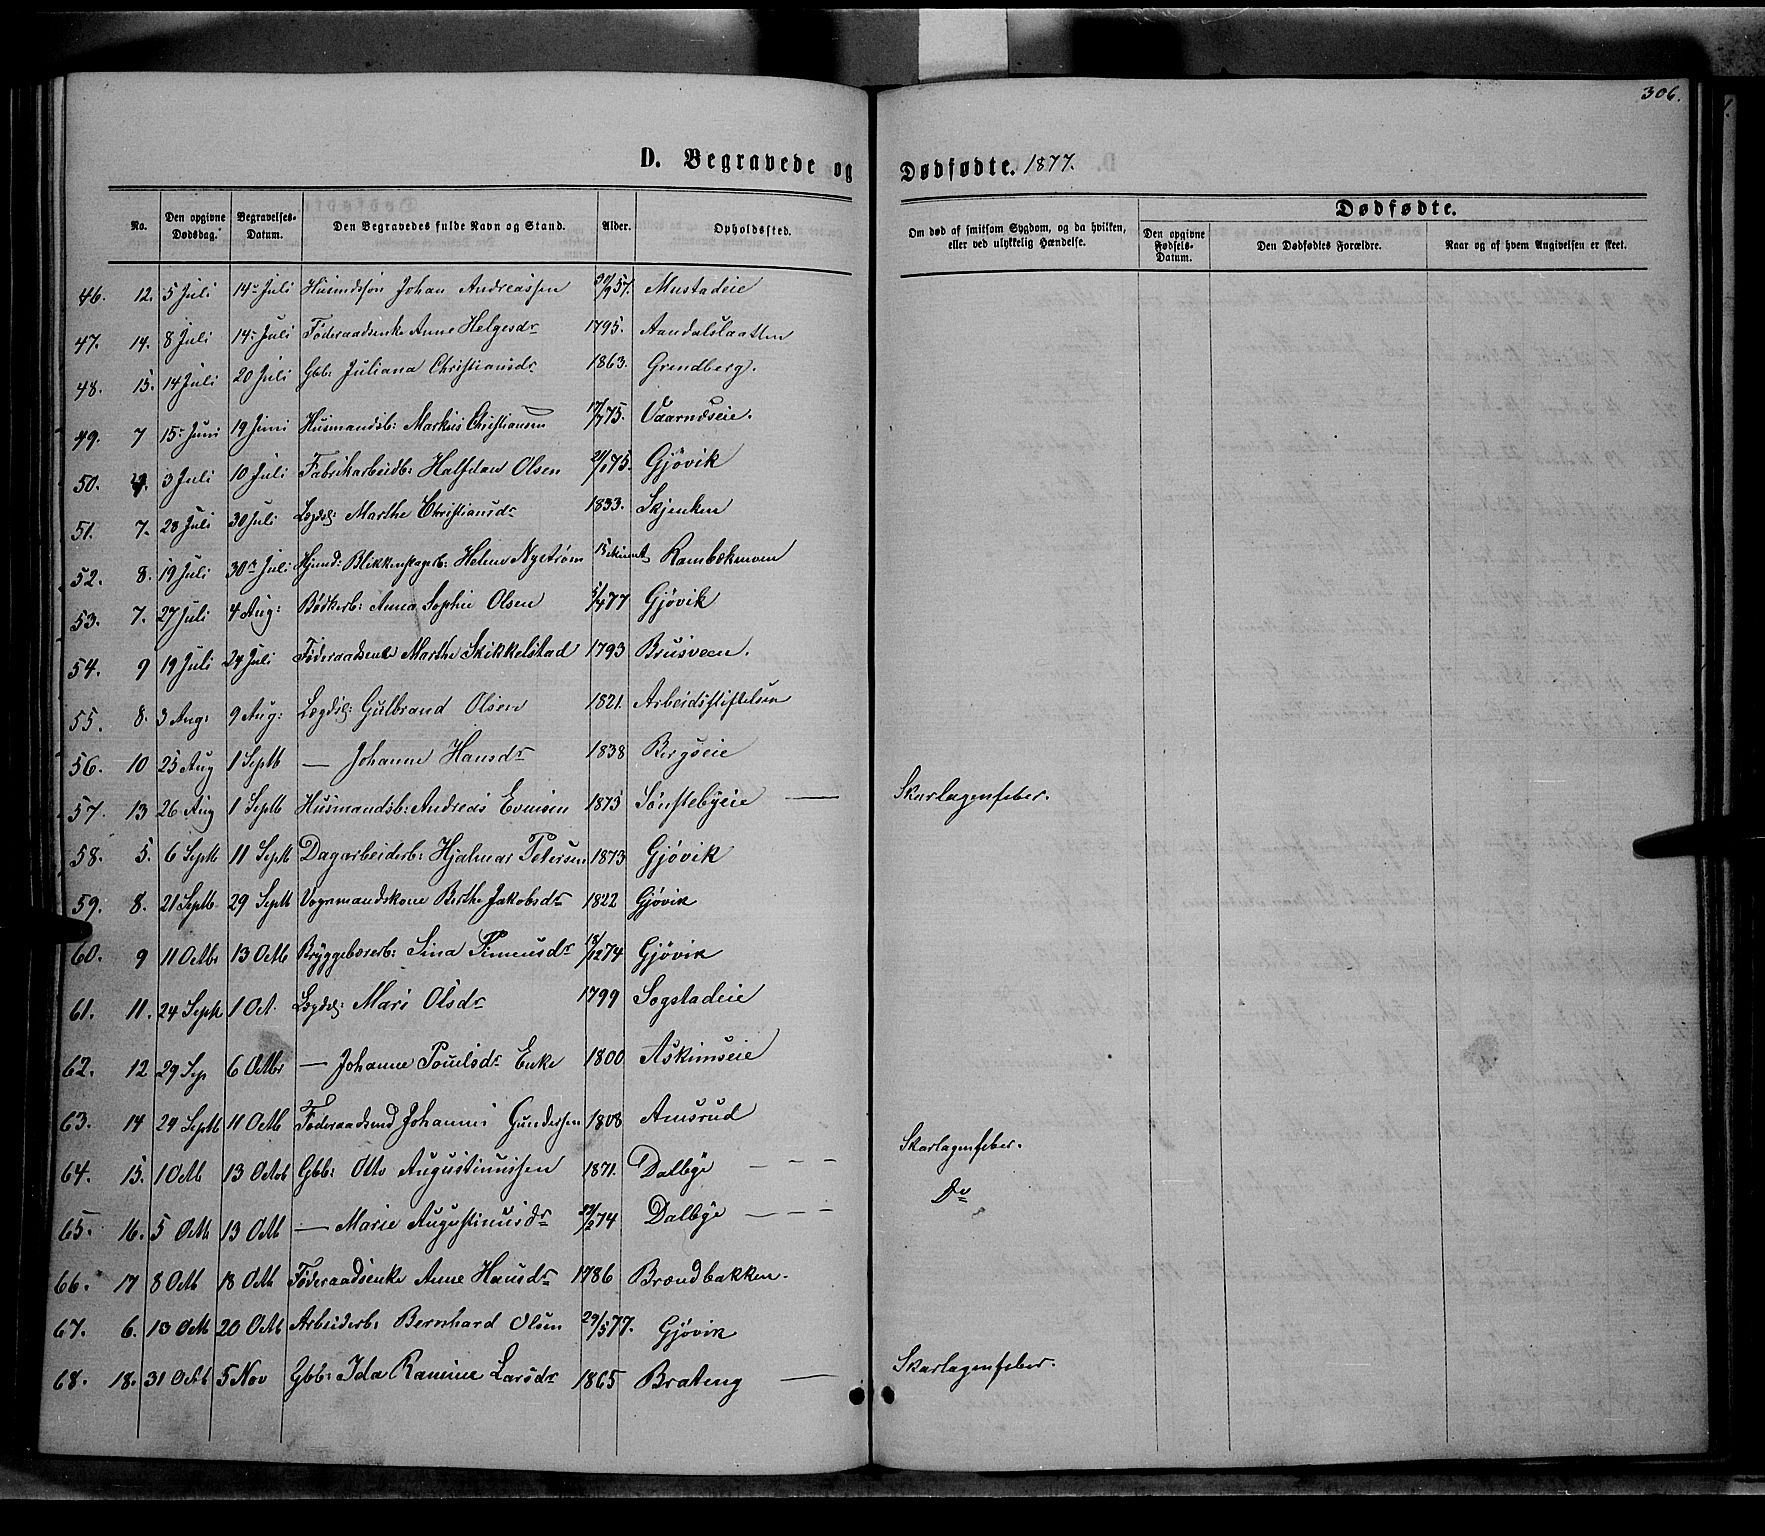 306.
D. Begravede og Dødfødte. 1877.
No. Den opgivne Dødsdag. Begravelses-Datum. Den Begravedes fulde Navn og Stand. Alder. Opholdssted. Om død af smitsom Sygdom, og da hvilken, eller ved ulykkelig Hændelse. Dødfødte. Den opgivne Fødsels-Datum. Den Dødfødtes Forældre. Naar og af hvem Angivelsen er skeet.
46. 12. 5 Juli 14 Juli Johan Andreassen 57. Mustadeie
47. 14. 8 Juli 14 Juli Føderaadsenke Anne Helgesdr 1795. Aandalslaatten
48. 15. 14 Juli 20 Juli Gbb: Juliana Christiansdr 1863. Grendberg.
49. 7 15 Juni 19 Juni Husmandsb: Markus Christiansen 17/7 75. Vaarnæseie.
50. 3 Juli 10 Juli Fabrikarbeidb: Halfdan Olsen 75. Gjøvik
51. 7. 28 Juli 30 Juli Lægdsl: Marthe Christiansdr 1833. Skjenken
52. 8. 19 Juli 30 Juli Blikkenslagerb: Helene Nystrøm Rambækmoen
53. 7. 27 Juli 4 Aug: Bødkerb: Anna Sophie Olsen 5/4 77 Gjøvik
54. 9 19 Juli 24 Juli Føderaadsenke Marthe Skikkelstad 1793 Brusveen.
55. 8. 3 Aug: 9 Aug: Lægdsl: Gulbrand Olsen 1821. Arbeidsstiftelsen
56. 10 25 Aug 1 Septb — Johanne Hansdr 1838 Bergseie
57. 13 26 Aug 1 Septb Husmandsb: Andreas Evensen 1875 Sønstebyeie — Skarlagensfeber.
58. 5. 6 Septb 11 Septb Dagarbeiderb: Hjalmar Petersen 1873 Gjøvik
59. 8. 21 Septb 29 Septb Vognmandskone Berthe Jakobsdr 1822 Gjøvik
60. 9 11 Octbr 13 Octb Bryggebærerb: Lina 18/12 74 Gjøvik
61. 11. 24 Septb 1 Oct. Lægdsl: Mari Olsdr 1799 Sogstadeie
62. 12 29 Sep 6 Octbr — Johanne Poulsdr Enke 1800 Askimseie
63. 14 29 Septb 11 Octb Føderaadsmd Johannes Gundersen 1808 Amsrud
64. 15. 1 Octb 13 Octob Gbb: Otto Augustinussen 1871. Dalbye — — — Skarlagensfeber.
65. 16. 5 Octb 13 Octb — Marie Augustinusdr 74 Dalbye — — — Do
66. 17 8 Octb 18 Octb Føderaadsenke Anne Hansdr 1786 Brændbakken.
67. 6. 13 Octb 20 Octb Arbeiderb: Bernhard Olsen 29/5 77. Gjøvik
68. 18. 31 Octb 5 Nov Gbb: Ida Ramine Larsdr 1865 Brateng — Skarlagensfeber.